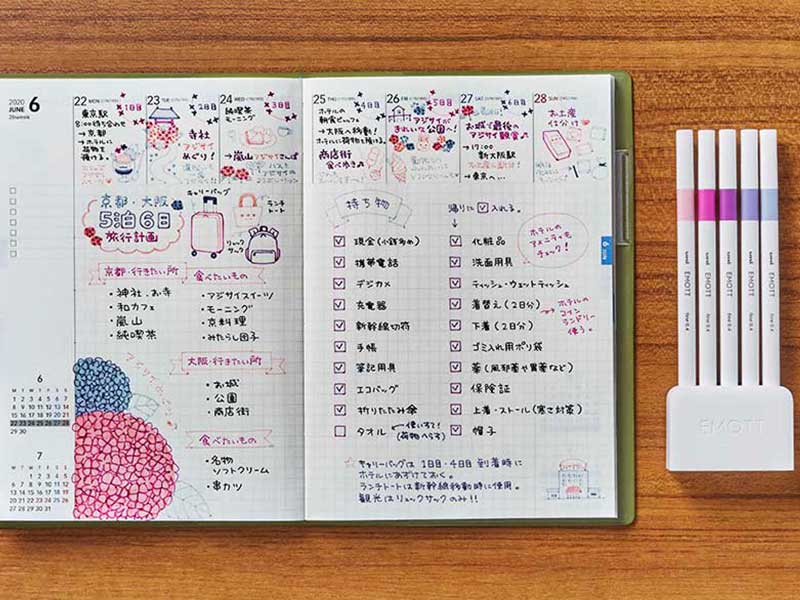 2020
JUNE 6
26week
22 MON 1日目
東京駅
8:00待ち合わせ
→京都
→ホテルに
荷物を
預ける。
23 TUE 2日目
寺社
アジサイ
めぐり!
24 WED 3日目
純喫茶
モーニング
→嵐山
25 THU 4日目
ホテルの
朝食ビュッフェ
→大阪へ移動!
ホテルに荷物を預ける。
商店街
食べ歩き
26 FRI 5日目
アジサイが
きれいな公園へ!
27 SAT 6日目
お城で最後の
アジサイ観賞
→17:00
新大阪駅
→東京へ…
28 SUN
お土産
仕分け
京都・大阪
5泊6日
旅行計画
キャリーバッグ
ランチ
トート
リュック
サック
京都・行きたい所
・神社、お寺
・和カフェ
・嵐山
・純喫茶
食べたいもの
・アジサイスイーツ
・モーニング
・京料理
・みたらし団子
大阪・行きたい所
・お城
・公園
・商店街
食べたいもの
・名物
ソフトクリーム
・串カツ
6
M T W T F S S
1 2 3 4 5 6 7
8 9 10 11 12 13 14
15 16 17 18 19 20 21
22 23 24 25 26 27 28
29 30
7
M T W T F S S
1 2 3 4 5
6 7 8 9 10 11 12
13 14 15 16 17 18 19
20 21 22 23 24 25 26
27 28 29 30 31
持ち物
帰りに ☑ 入れる。
☑ 現金(小銭多め)
☑ 携帯電話
☑ デジカメ
☑ 充電器
☑ 新幹線切符
☑ 手帳
☑ 筆記用具
☑ エコバッグ
☑ 折りたたみ傘
☐ タオル
☑ 化粧品
☑ 洗面用具
☑ ティッシュ・ウェットティッシュ
☑ 着替え(2日分)
☑ 下着(2日分)
☑ ゴミ入れ用ポリ袋
☑ 薬(風邪薬や胃薬など)
☑ 保険証
☑ 上着・ストール(寒さ対策)
☑ 帽子
ホテルの
アメニティも
チェック!
ホテルの
コイン
ランドリー
使う。
☆キャリーバッグは1日目・4日目 到着時に
ホテルにあずけておく。
ランチトートは新幹線移動時に使用。
観光はリュックサックのみ!!
6 JUN
uni EMOTT fine 0.4
uni EMOTT fine 0.4
uni EMOTT fine 0.4
uni EMOTT fine 0.4
uni EMOTT fine 0.4
EMOTT